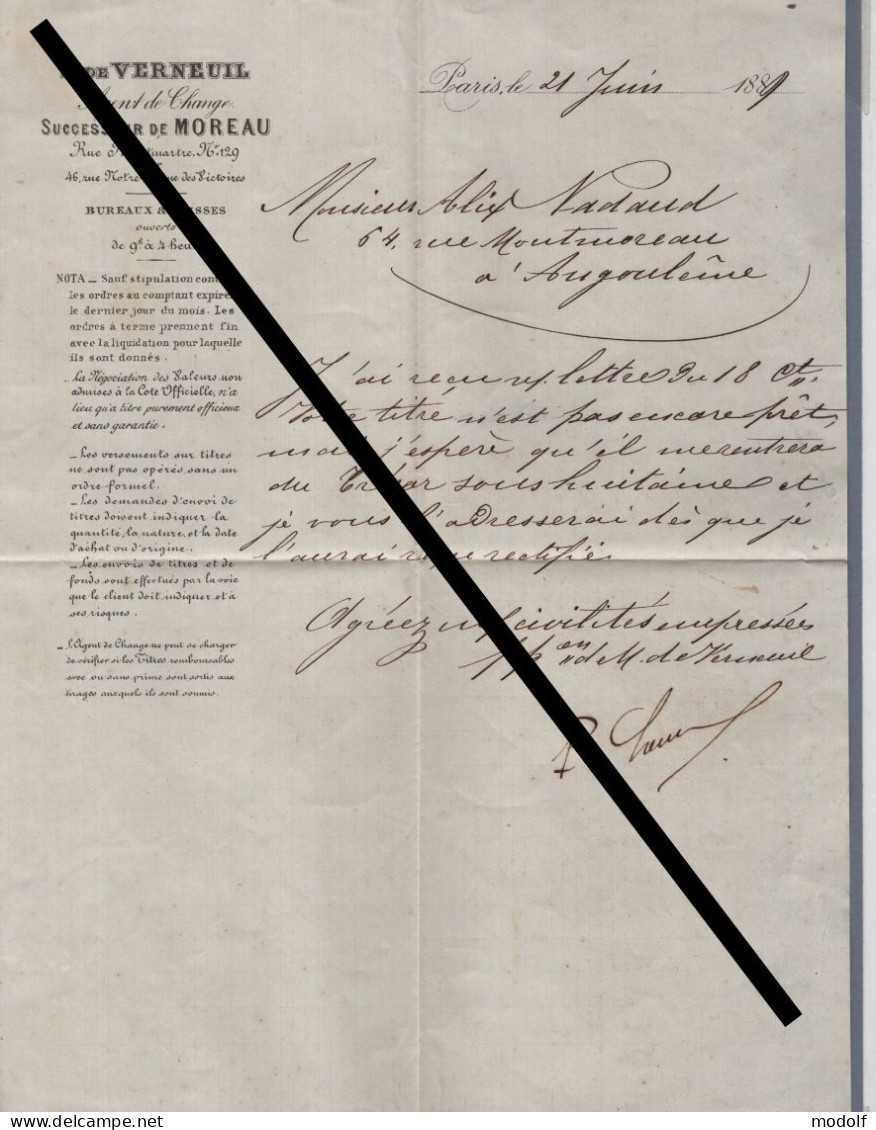 DE VERNEUIL
de Change
SUCCESSEUR DE MOREAU
Rue Montmartre, No. 129
46, rue Notre Dame des Victoires
BUREAUX & CAISSES
ouverts
de 9h à 4 heures
Paris, le 21 Juin 1889
Monsieur Alix Nadaud
64, rue Montmoreau
à Angoulême
NOTA _ Sauf stipulation
les ordres au comptant expirent
le dernier jour du mois. Les
ordres à terme prennent fin
avec la liquidation pour laquelle
ils sont donnés.
_ La Négociation des Valeurs non
admises à la Cote Officielle, n'a
lieu qu'à titre purement officieux
et sans garantie.
_ Les versements sur titres
ne sont pas opérés sans un
ordre formel.
_ Les demandes d'envoi de
titres doivent indiquer la
quantité, la nature, et la date
d'achat ou d'origine.
_ Les envois de titres et de
fonds sont effectués par la voie
que le client doit indiquer et à
ses risques.
_ L'Agent de Change ne peut se charger
de vérifier si les Titres remboursables
avec ou sans prime sont sortis aux
tirages auxquels ils sont soumis.
J'ai reçu v/ lettre du 18 Ct.
Votre titre n'est pas encore prêt,
mais j'espère qu'il me rentrera
du Trésor sous huitaine et
je vous l'adresserai dès que je
l'aurai reçu rectifié
Agréez mes civilités empressées
p pon d M. de Verneuil
modolf